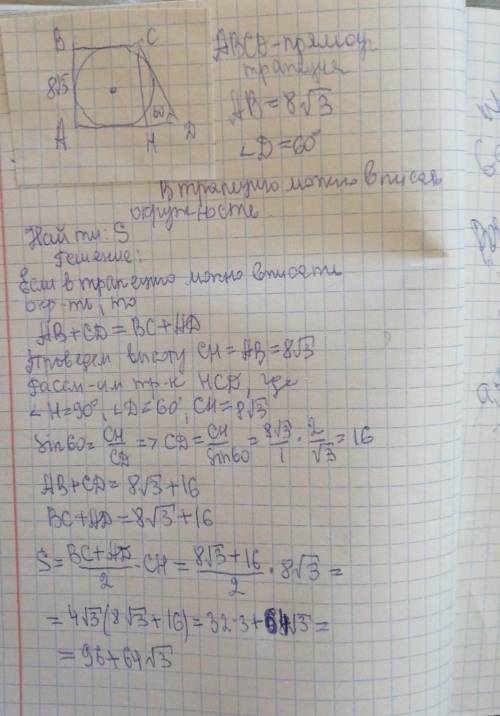 B C
ABCD - прямоуг.
трапеция
8√3
AB = 8√3
60°
A H D
∠D = 60°
В трапецию можно вписать
окружность.
Найти: S
Решение:
Если в трапецию можно вписать
окр-ть, то
AB + CD = BC + AD
Проведем высоту CH = AB = 8√3
Рассм-им тр-к HCD, где
∠H = 90°, ∠D = 60°, CH = 8√3
Sin60 = CH/CD => CD = CH/Sin60 = 8√3/1 · 2/√3 = 16
AB + CD = 8√3 + 16
BC + AD = 8√3 + 16
S = BC + AD/2 · CH = 8√3 + 16/2 · 8√3 =
= 4√3(8√3 + 16) = 32·3 + 64√3 =
= 96 + 64√3